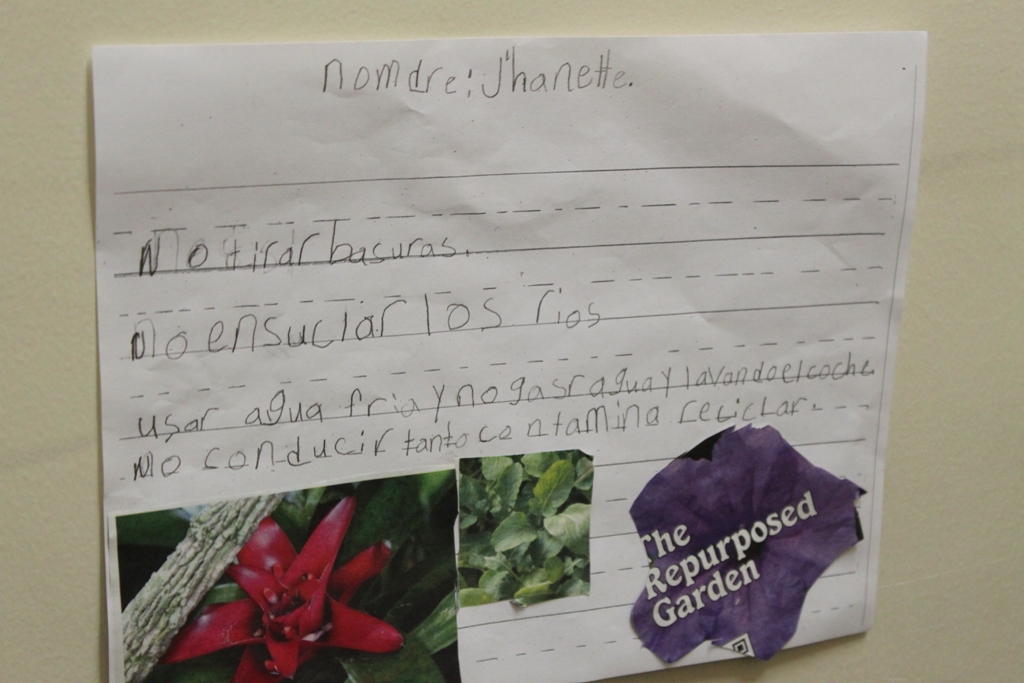 nomdre: J'hanette.
No tirar basuras.
No ensuciar los rios
usar agua fria y no gasr agua y lavando el coche
No conducir tanto contamina reciclar.
The
Repurposed
Garden